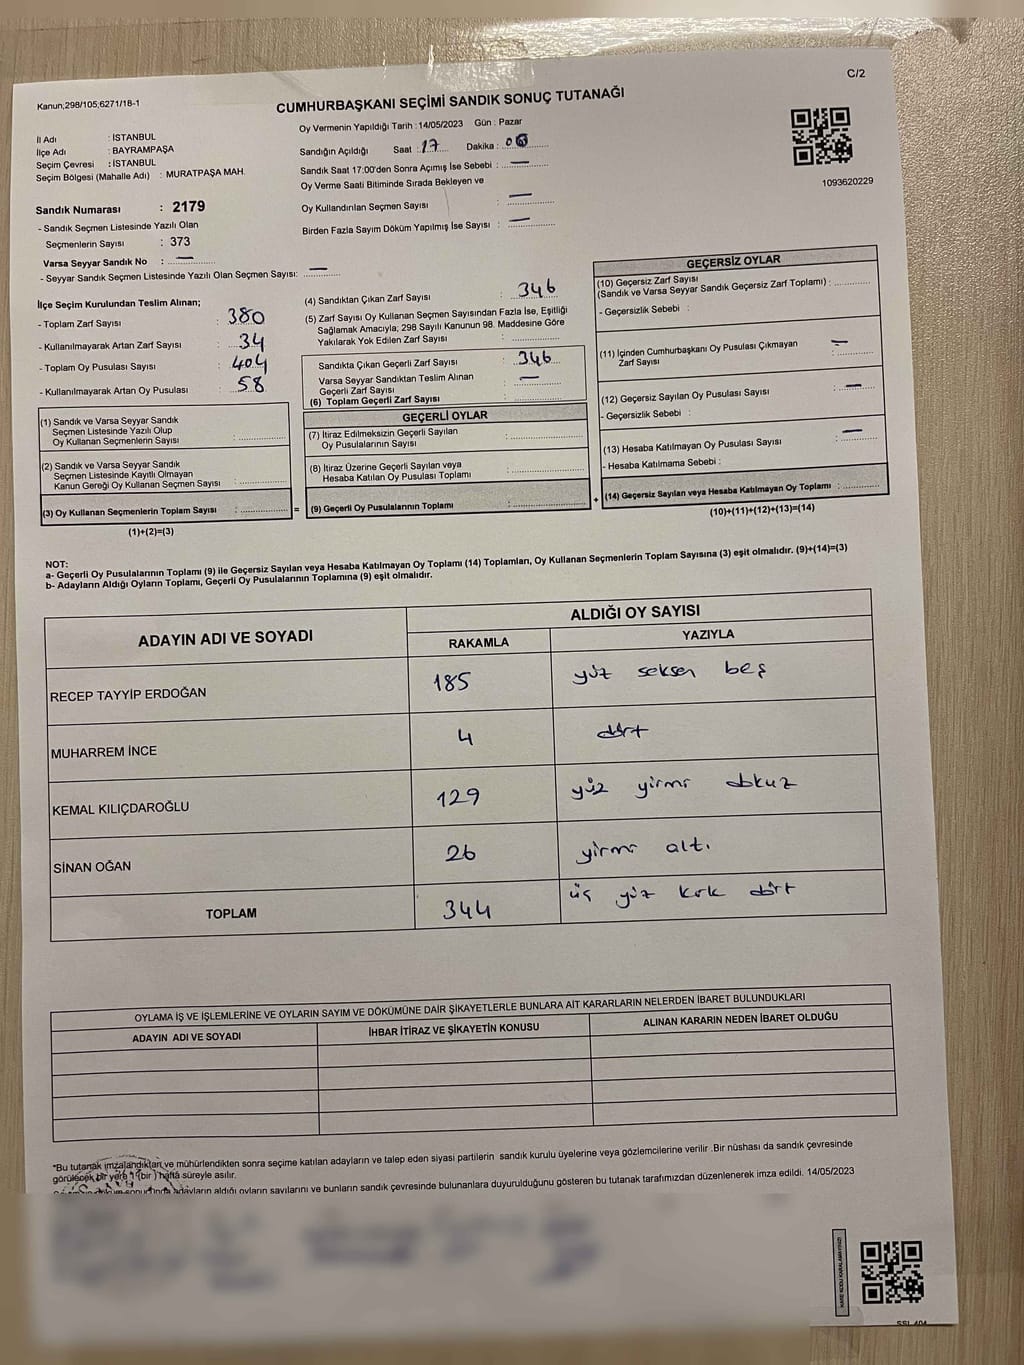 C/2
Kanun;298/105;6271/18-1
CUMHURBAŞKANI SEÇİMİ SANDIK SONUÇ TUTANAĞI
İl Adı : İSTANBUL
İlçe Adı : BAYRAMPAŞA
Seçim Çevresi : İSTANBUL
Seçim Bölgesi (Mahalle Adı) : MURATPAŞA MAH.
Sandık Numarası : 2179
- Sandık Seçmen Listesinde Yazılı Olan
Seçmenlerin Sayısı : 373
Varsa Seyyar Sandık No : —
- Seyyar Sandık Seçmen Listesinde Yazılı Olan Seçmen Sayısı: —
Oy Vermenin Yapıldığı Tarih : 14/05/2023 Gün : Pazar
Sandığın Açıldığı Saat : 17 Dakika :
Sandık Saat 17:00'den Sonra Açımış İse Sebebi : —
Oy Verme Saati Bitiminde Sırada Bekleyen ve
Oy Kullandırılan Seçmen Sayısı : —
Birden Fazla Sayım Döküm Yapılmış İse Sayısı : —
1093620229
İlçe Seçim Kurulundan Teslim Alınan;
- Toplam Zarf Sayısı : 380
- Kullanılmayarak Artan Zarf Sayısı : 34
- Toplam Oy Pusulası Sayısı : 404
- Kullanılmayarak Artan Oy Pusulası : 58
(1) Sandık ve Varsa Seyyar Sandık
Seçmen Listesinde Yazılı Olup
Oy Kullanan Seçmenlerin Sayısı :
(2) Sandık ve Varsa Seyyar Sandık
Seçmen Listesinde Kayıtlı Olmayan
Kanun Gereği Oy Kullanan Seçmen Sayısı :
(3) Oy Kullanan Seçmenlerin Toplam Sayısı : =
(1)+(2)=(3)
(4) Sandıktan Çıkan Zarf Sayısı : 346
(5) Zarf Sayısı Oy Kullanan Seçmen Sayısından Fazla İse, Eşitliği
Sağlamak Amacıyla; 298 Sayılı Kanunun 98. Maddesine Göre
Yakılarak Yok Edilen Zarf Sayısı :
Sandıkta Çıkan Geçerli Zarf Sayısı : 346
Varsa Seyyar Sandıktan Teslim Alınan
Geçerli Zarf Sayısı : —
(6) Toplam Geçerli Zarf Sayısı :
GEÇERLİ OYLAR
(7) İtiraz Edilmeksizin Geçerli Sayılan
Oy Pusulalarının Sayısı :
(8) İtiraz Üzerine Geçerli Sayılan veya
Hesaba Katılan Oy Pusulası Toplamı :
(9) Geçerli Oy Pusulalarının Toplamı : +
GEÇERSİZ OYLAR
(10) Geçersiz Zarf Sayısı
(Sandık ve Varsa Seyyar Sandık Geçersiz Zarf Toplamı) :
- Geçersizlik Sebebi :
(11) İçinden Cumhurbaşkanı Oy Pusulası Çıkmayan
Zarf Sayısı : —
(12) Geçersiz Sayılan Oy Pusulası Sayısı : —
- Geçersizlik Sebebi :
(13) Hesaba Katılmayan Oy Pusulası Sayısı : —
- Hesaba Katılmama Sebebi :
(14) Geçersiz Sayılan veya Hesaba Katılmayan Oy Toplamı :
(10)+(11)+(12)+(13)=(14)
NOT:
a- Geçerli Oy Pusulalarının Toplamı (9) ile Geçersiz Sayılan veya Hesaba Katılmayan Oy Toplamı (14) Toplamları, Oy Kullanan Seçmenlerin Toplam Sayısına (3) eşit olmalıdır. (9)+(14)=(3)
b- Adayların Aldığı Oyların Toplamı, Geçerli Oy Pusulalarının Toplamına (9) eşit olmalıdır.
ADAYIN ADI VE SOYADI
ALDIĞI OY SAYISI
RAKAMLA YAZIYLA
RECEP TAYYİP ERDOĞAN 185 yüz seksen beş
MUHARREM İNCE 4 dört
KEMAL KILIÇDAROĞLU 129 yüz yirmi dokuz
SİNAN OĞAN 26 yirmi altı
TOPLAM 344 üç yüz kırk dört
OYLAMA İŞ VE İŞLEMLERİNE VE OYLARIN SAYIM VE DÖKÜMÜNE DAİR ŞİKAYETLERLE BUNLARA AİT KARARLARIN NELERDEN İBARET BULUNDUKLARI
ADAYIN ADI VE SOYADI İHBAR İTİRAZ VE ŞİKAYETİN KONUSU ALINAN KARARIN NEDEN İBARET OLDUĞU
*Bu tutanak imzalandıktan ve mühürlendikten sonra seçime katılan adayların ve talep eden siyasi partilerin sandık kurulu üyelerine veya gözlemcilerine verilir .Bir nüshası da sandık çevresinde
görülecek bir yere 1 (bir ) hafta süreyle asılır.
adayların aldığı oyların sayılarını ve bunların sandık çevresinde bulunanlara duyurulduğunu gösteren bu tutanak tarafımızdan düzenlenerek imza edildi. 14/05/2023